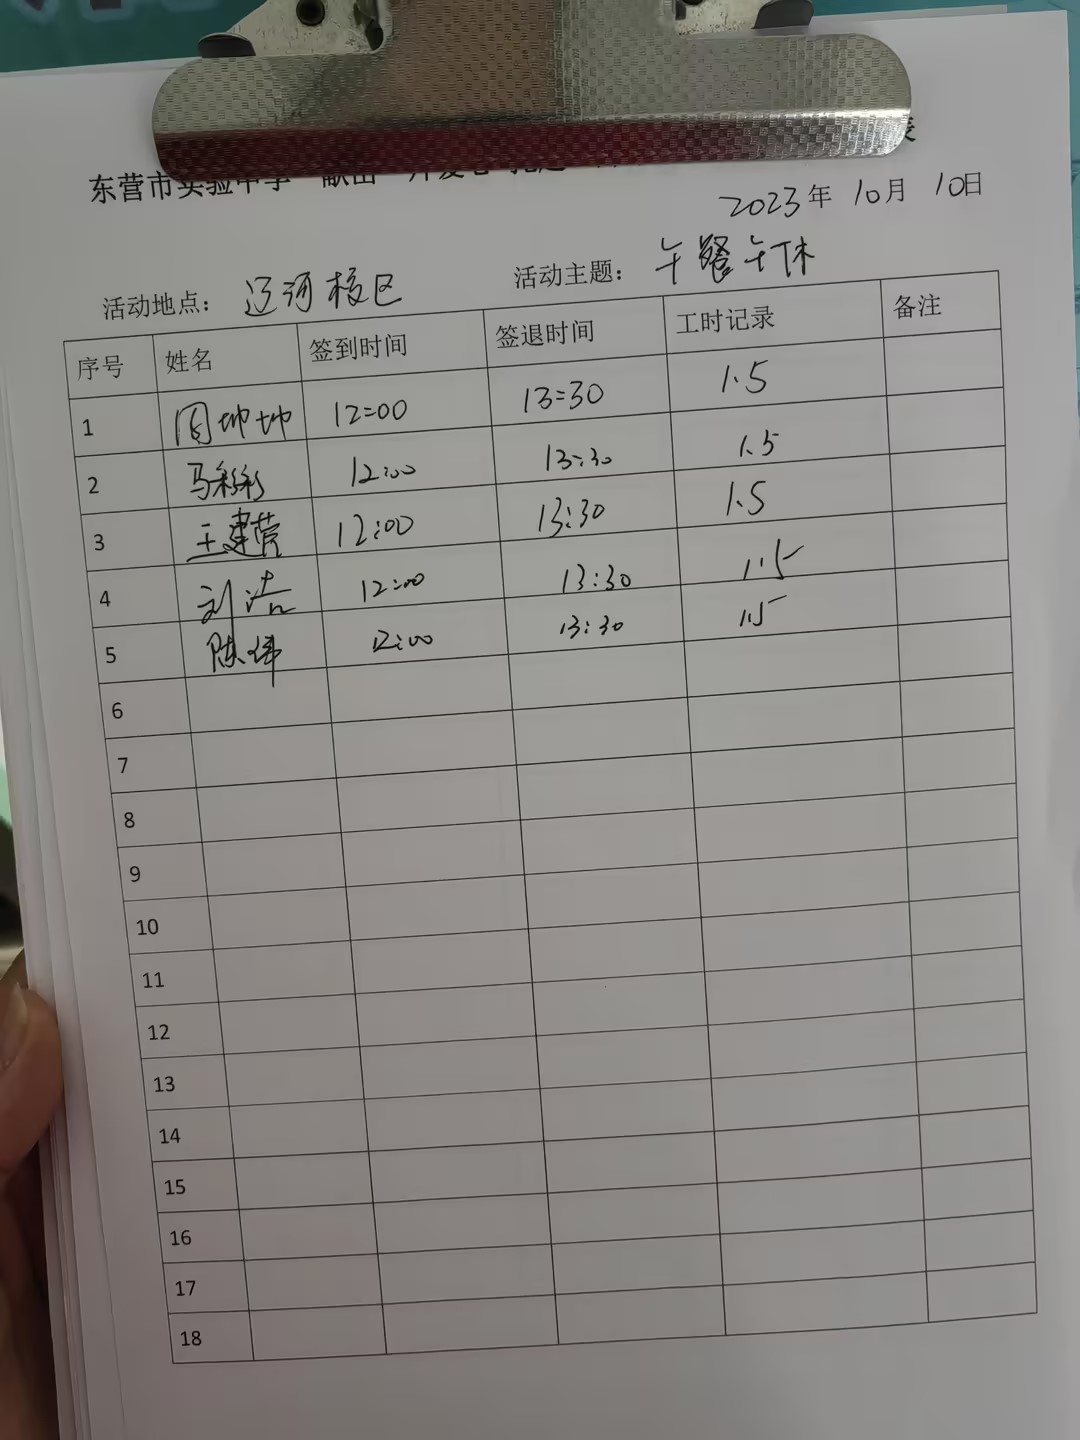 东营市实验中学
2023年 10月 10日
活动地点：辽河校区 活动主题：午餐午休
序号 姓名 签到时间 签退时间 工时记录 备注
1 周坤坤 12:00 13:30 1.5
2 马彩彩 12:00 13:30 1.5
3 王建营 12:00 13:30 1.5
4 刘洁 12:00 13:30 1.5
5 陈伟 12:00 13:30 1.5
6
7
8
9
10
11
12
13
14
15
16
17
18